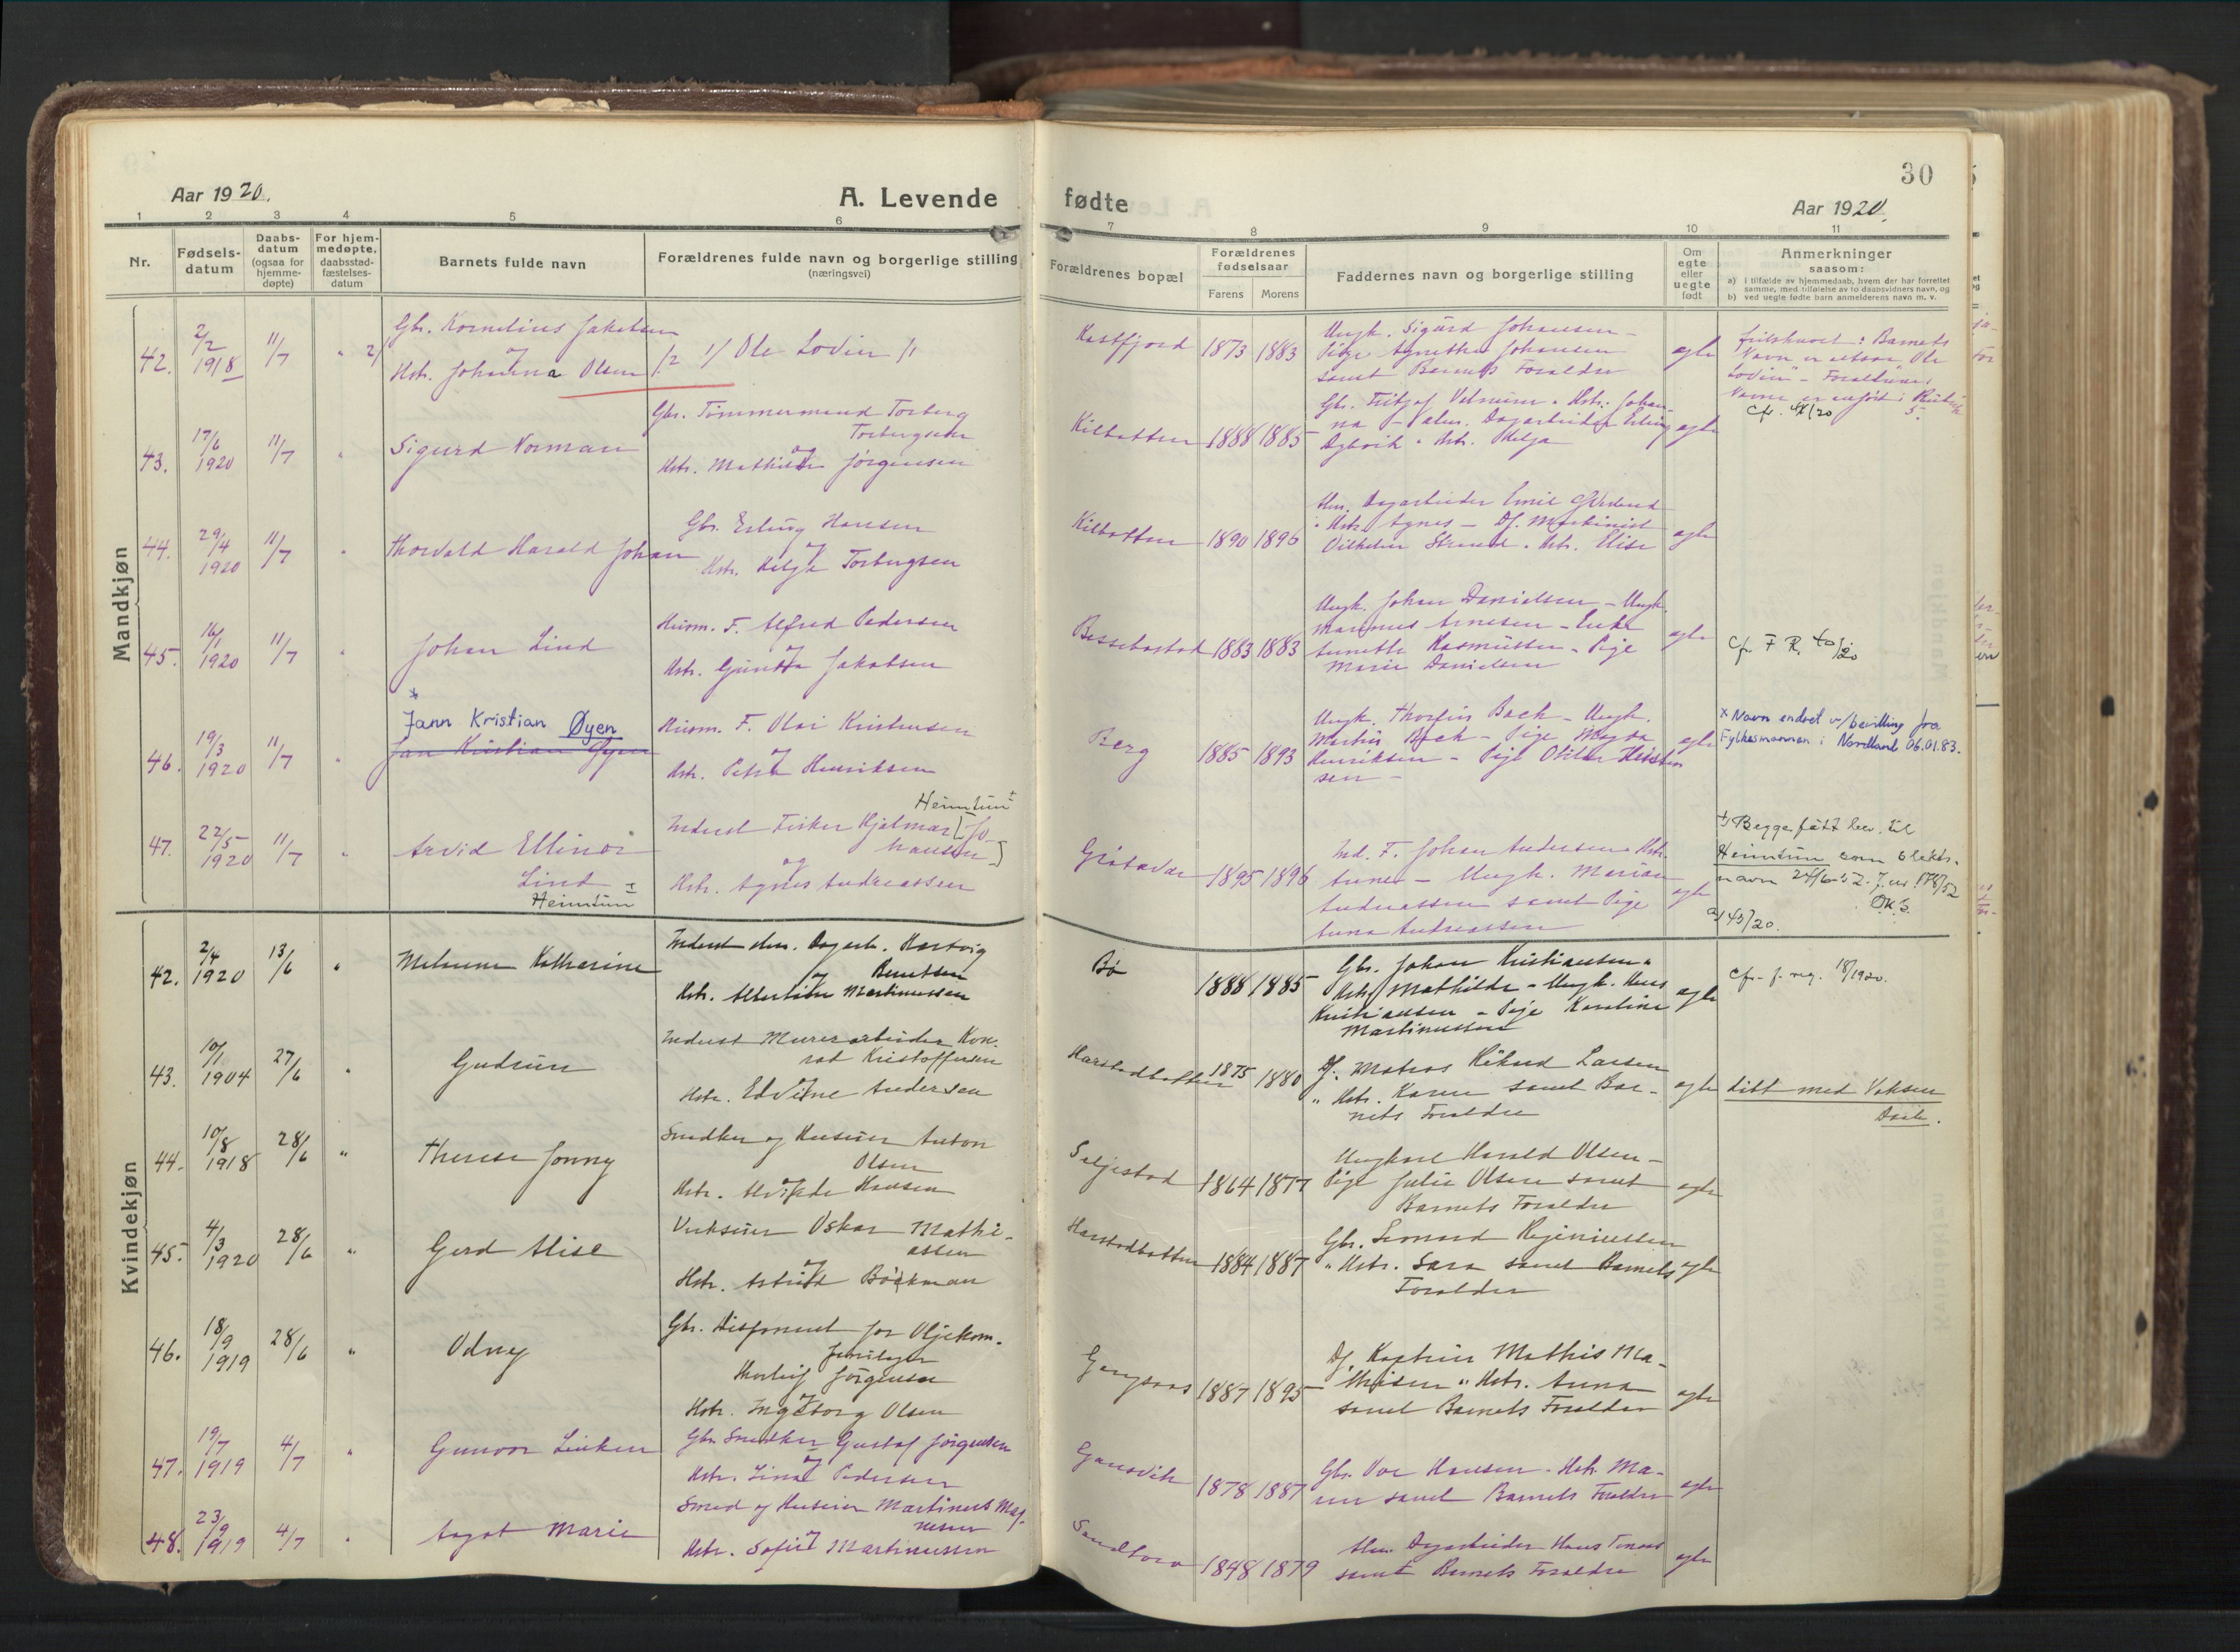 30
Aar 1920.
A. Levende fødte
Aar 1920.
1 2 3 4 5 6 7 8 9 10 11
Nr.
Fødsels-
datum
Daabs-
datum
(ogsaa for
hjemme-
døpte)
For hjem-
medøpte,
daabsstad-
fæstelses-
datum
Barnets fulde navn
Forældrenes fulde navn og borgerlige stilling
(næringsvei)
Forældrenes bopæl
Forældrenes
fødselsaar
Farens Morens
Faddernes navn og borgerlige stilling
Om
egte
eller
uegte
født
Anmerkninger
saasom:
a) i tilfælde av hjemmedaab, hvem der har forrettet
samme, med tilføielse av to daabsvidners navn, og
b) ved uegte fødte barn anmelderens navn m. v.
Mandkjøn
42. 2/2 1918 11/7 "
Gbr. Kornelius Jakobsen
og
Hstr. Johanna Olsen
Ole Lodin
Kastfjord 1873 1883
Ungk. Sigurd Johansen -
Pige Agnethe Johansen
samt Barnets Forældre
egte
: Barnets
Navn er Ole
Lodin" - Forældrenes
Navne er anført i Rubrik
5.
43. 17/6 1920 11/7 "
Sigurd Norman
Gbr. Tømmermand Torberg
Torbergsen
og
Hstr. Mathilde Jørgensen
Kilbotten 1888 1885
egte
Cfr. 41/20
44. 29/4 1920 11/7 "
Thorvald Harald Johan
Gbr. Erling Hansen
og
Hstr. Helga Torbergsen
Kilbotten 1890 1896
Hstr. Agnes - Df. Maskinist
Vilhelm Strand. Hstr. Elise
egte
45. 16/1 1920 11/7 "
Johan Lind
Husm. F. Alfred Pedersen
og
Hstr. Gunda Jakobsen
Bessebostad 1883 1883
Ungk. Johan Danielsen - Ungk.
Marinus Arnesen - Enke
Anneth Rasmussen - Pige
Marie Danielsen
egte
Cfr F R. 40/20
46. 19/3 1920 11/7 "
*
Jann Kristian Øyen
Jan Kristian Øyen
Husm. F. Olai Kristensen
og
Hstr. Petra Henriksen
Berg 1885 1893
Ungk. Thorfin Back - Ungk.
Martin Back - Pige Magda
Henriksen - Pige
sen -
egte
x Navn endret v/bevilling fra
Fylkesmannen i Nordland 06.01.83.
47. 22/5 1920 11/7 "
Arvid Ellinor
Lind ±
Heimtun
Heimtun ±
Inderst Fisker Hjalmar [Jo-
hansen]
og
Hstr. Agnes Andreassen
Grøtavær 1895 1896
Ind. F. Johan Andersen Hstr.
Anne - Ungk. Marian
Andreassen samt Pige
Anna Andreassen
egte
±) Begge fått bev. til
Heimtun som slekts-
navn 24/6-52. J.nr 178/52
O.K.S.
45/20.
Kvindekjøn
42. 2/4 1920 13/6 "
Melanne Katharine
Inderst alm. Dagarb. Hartvig
og Berntsen
Hstr. Albertine Martinussen
Bø 1888 1885
Gbr. Johan Kristiansen "
Hstr. Mathilde - Ungk. Hans
Kristiansen - Pige Karoline
Martinussen
egte
Cfr. f. reg. 18/1920.
43. 10/1 1904 27/6 "
Gudrun
Inderst Murerarbeider Kon-
rad Kristoffersen
og
Hstr. Edvine Andersen
Harstadbotten 1875 1880
Df. Matros Rikard Larsen
" Hstr. Karen samt Bar-
nets Forældre
egte
Litt med Voksen
Daab.
44. 10/8 1918 28/6 "
Therese Jonny
Snedker og Huseier Anton
Olsen
og
Hstr. Alvilde Hansen
Seljestad 1864 1877
Ungkarl Harald Olsen -
Pige Julie Olsen samt
Barnets Forældre
egte
45. 4/3 1920 28/6 "
Gerd Alise
Verkseier Oskar Mathi-
assen
og
Hstr. Astrid Bøckman
Harstadbotten 1884 1887
Gbr. Leonard Reginiussen
" Hstr. Sara samt Barnets
Forældre
egte
46. 18/9 1919 28/6 "
Odny
Gbr. Disponent for Oljekom-
Thorleif Jørgensen
og
Hstr. Ingeborg Olsen
Gangsaas 1887 1895
Df. Kaptein Mathis Ma-
thisen " Hstr. Anna
samt Barnets Forældre
egte
47. 19/7 1919 4/7 "
Gunvor Linken
Gbr. Snedker Gustaf Jørgensen
og
Hstr. Lina Pedersen
Gansvik 1878 1887
Gbr. Ove Hansen. Hstr. Ma-
samt Barnets Forældre
egte
48. 23/9 1919 4/7 "
Aagot Marie
Smed og Huseier Martinus Mag-
nesen
og
Hstr. Sofie Martinussen
Sandtorv 1848 1879
Alm. Dagarbeider Hans
samt Barnets Forældre
egte